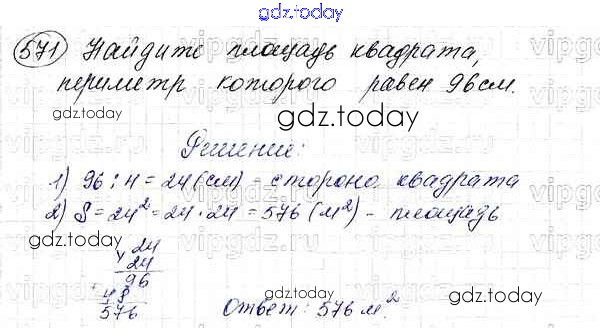 gdz.today
571 Найдите площадь квадрата,
периметр которого равен 96 см.
gdz.today
Решение:
1) 96 : 4 = 24 (см) - сторона квадрата
2) S = 24² = 24 · 24 = 576 (м²) - площадь
gdz.today
24
24
96
48
576
Ответ: 576 м².
gdz.today